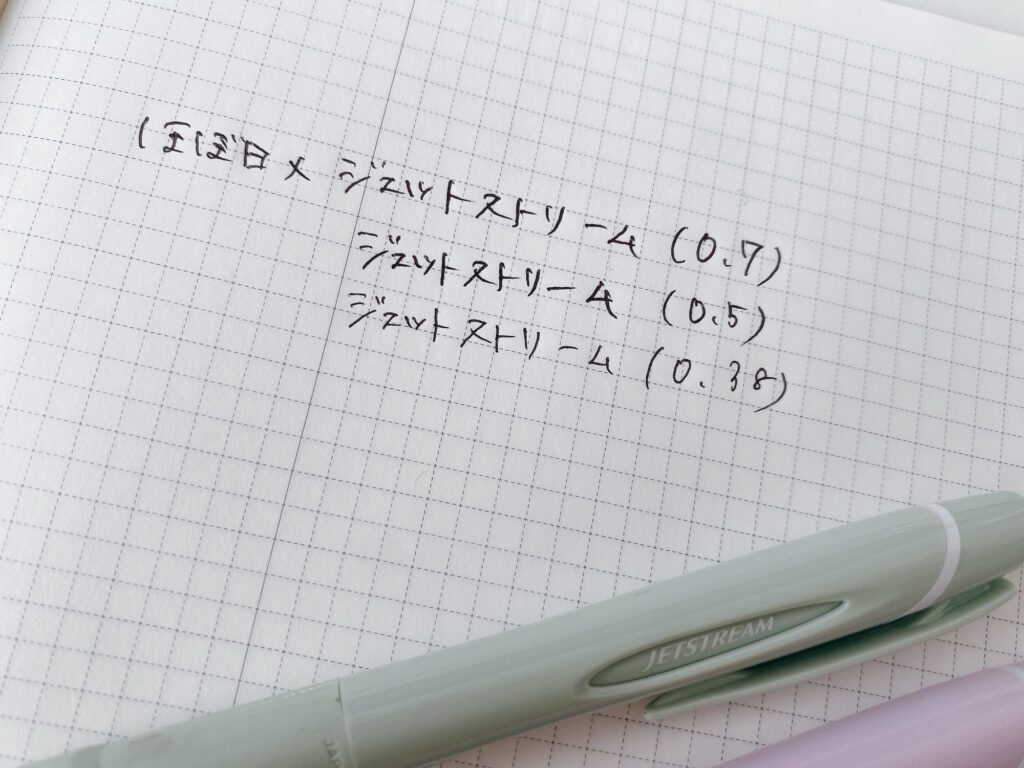 ほぼ日×ジェットストリーム(0.7)
ジェットストリーム(0.5)
ジェットストリーム(0.38)
JETSTREAM
JAPAN